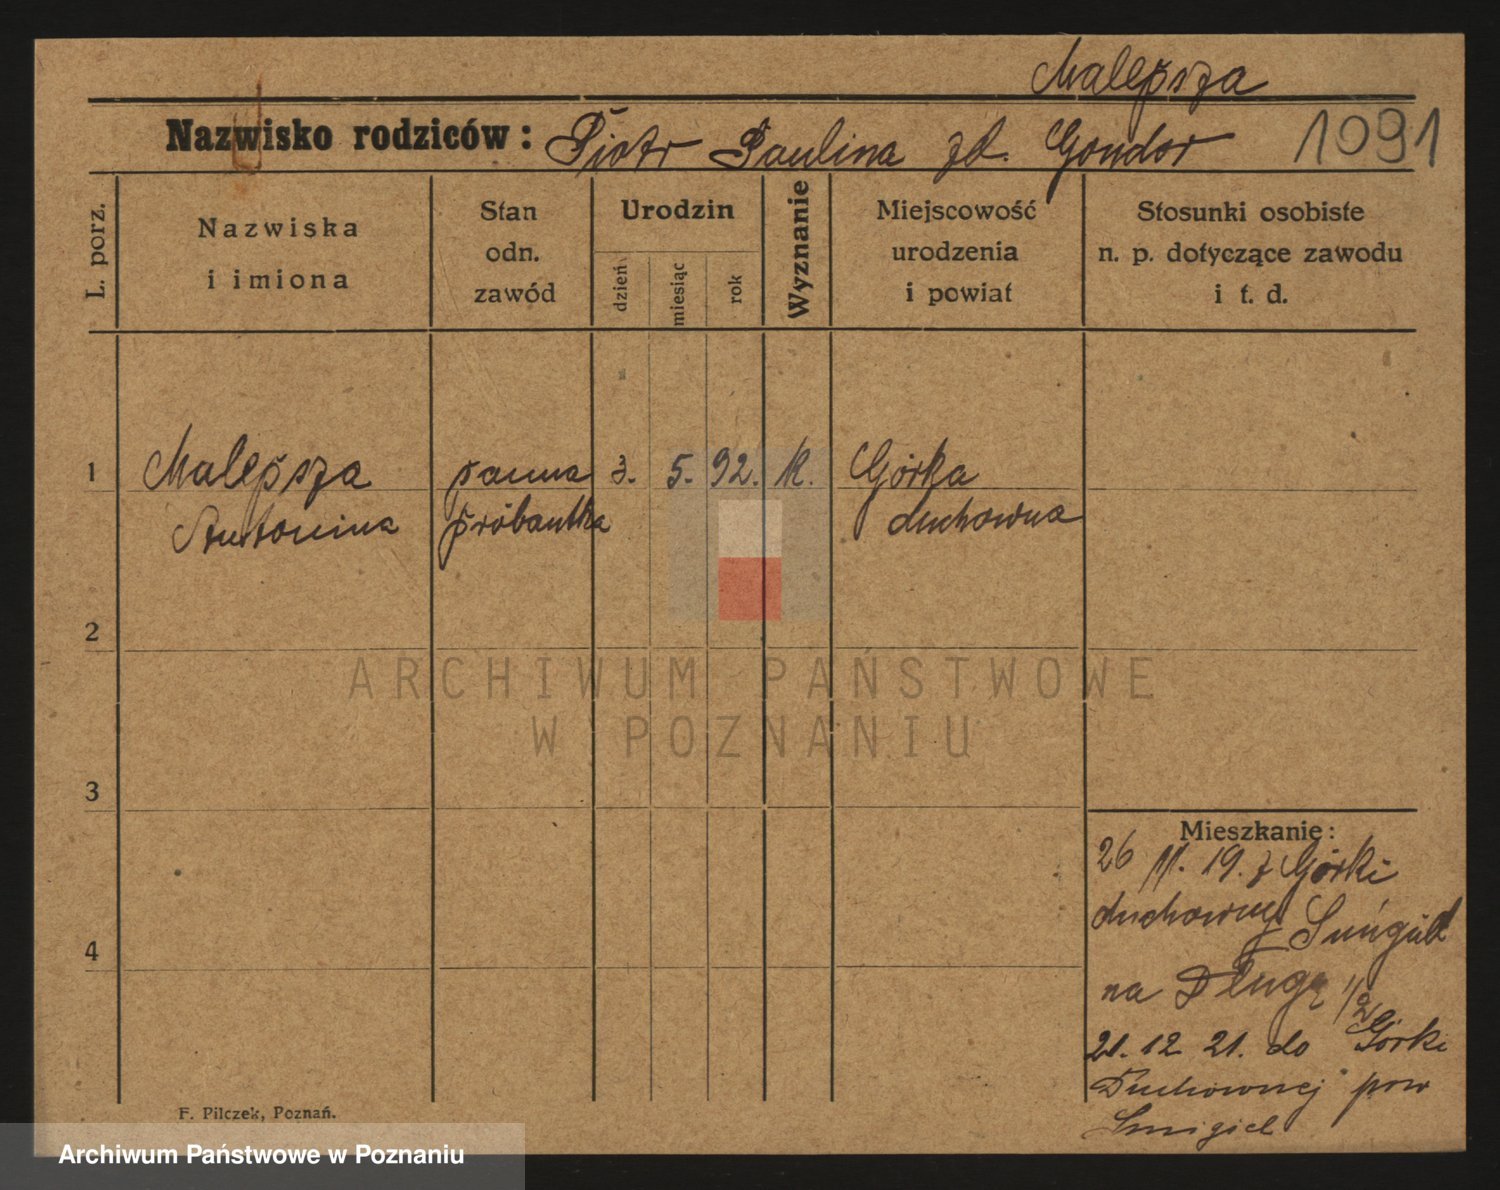 Malepsza
Nazwisko rodziców: Piotr Paulina zd. Gondor 1091
L. porz.
Nazwiska
i imiona
Stan
odn.
zawód
Urodzin
dzień
miesiąc
rok
Wyznanie
Miejscowość
urodzenia
i powiat
Stosunki osobiste
n. p. dotyczące zawodu
i t. d.
1 Malepsza panna 3. 5. 92. k. Górka
Antonina próbantka duchowna
2
3
4
Mieszkanie:
26 11. 19. z Górki
duchownej
na Długą 1/2
21. 12 21. do Górki
Duchownej pow
Smigiel
F. Pilczek, Poznań.
ARCHIWUM PAŃSTWOWE
W POZNANIU
Archiwum Państwowe w Poznaniu